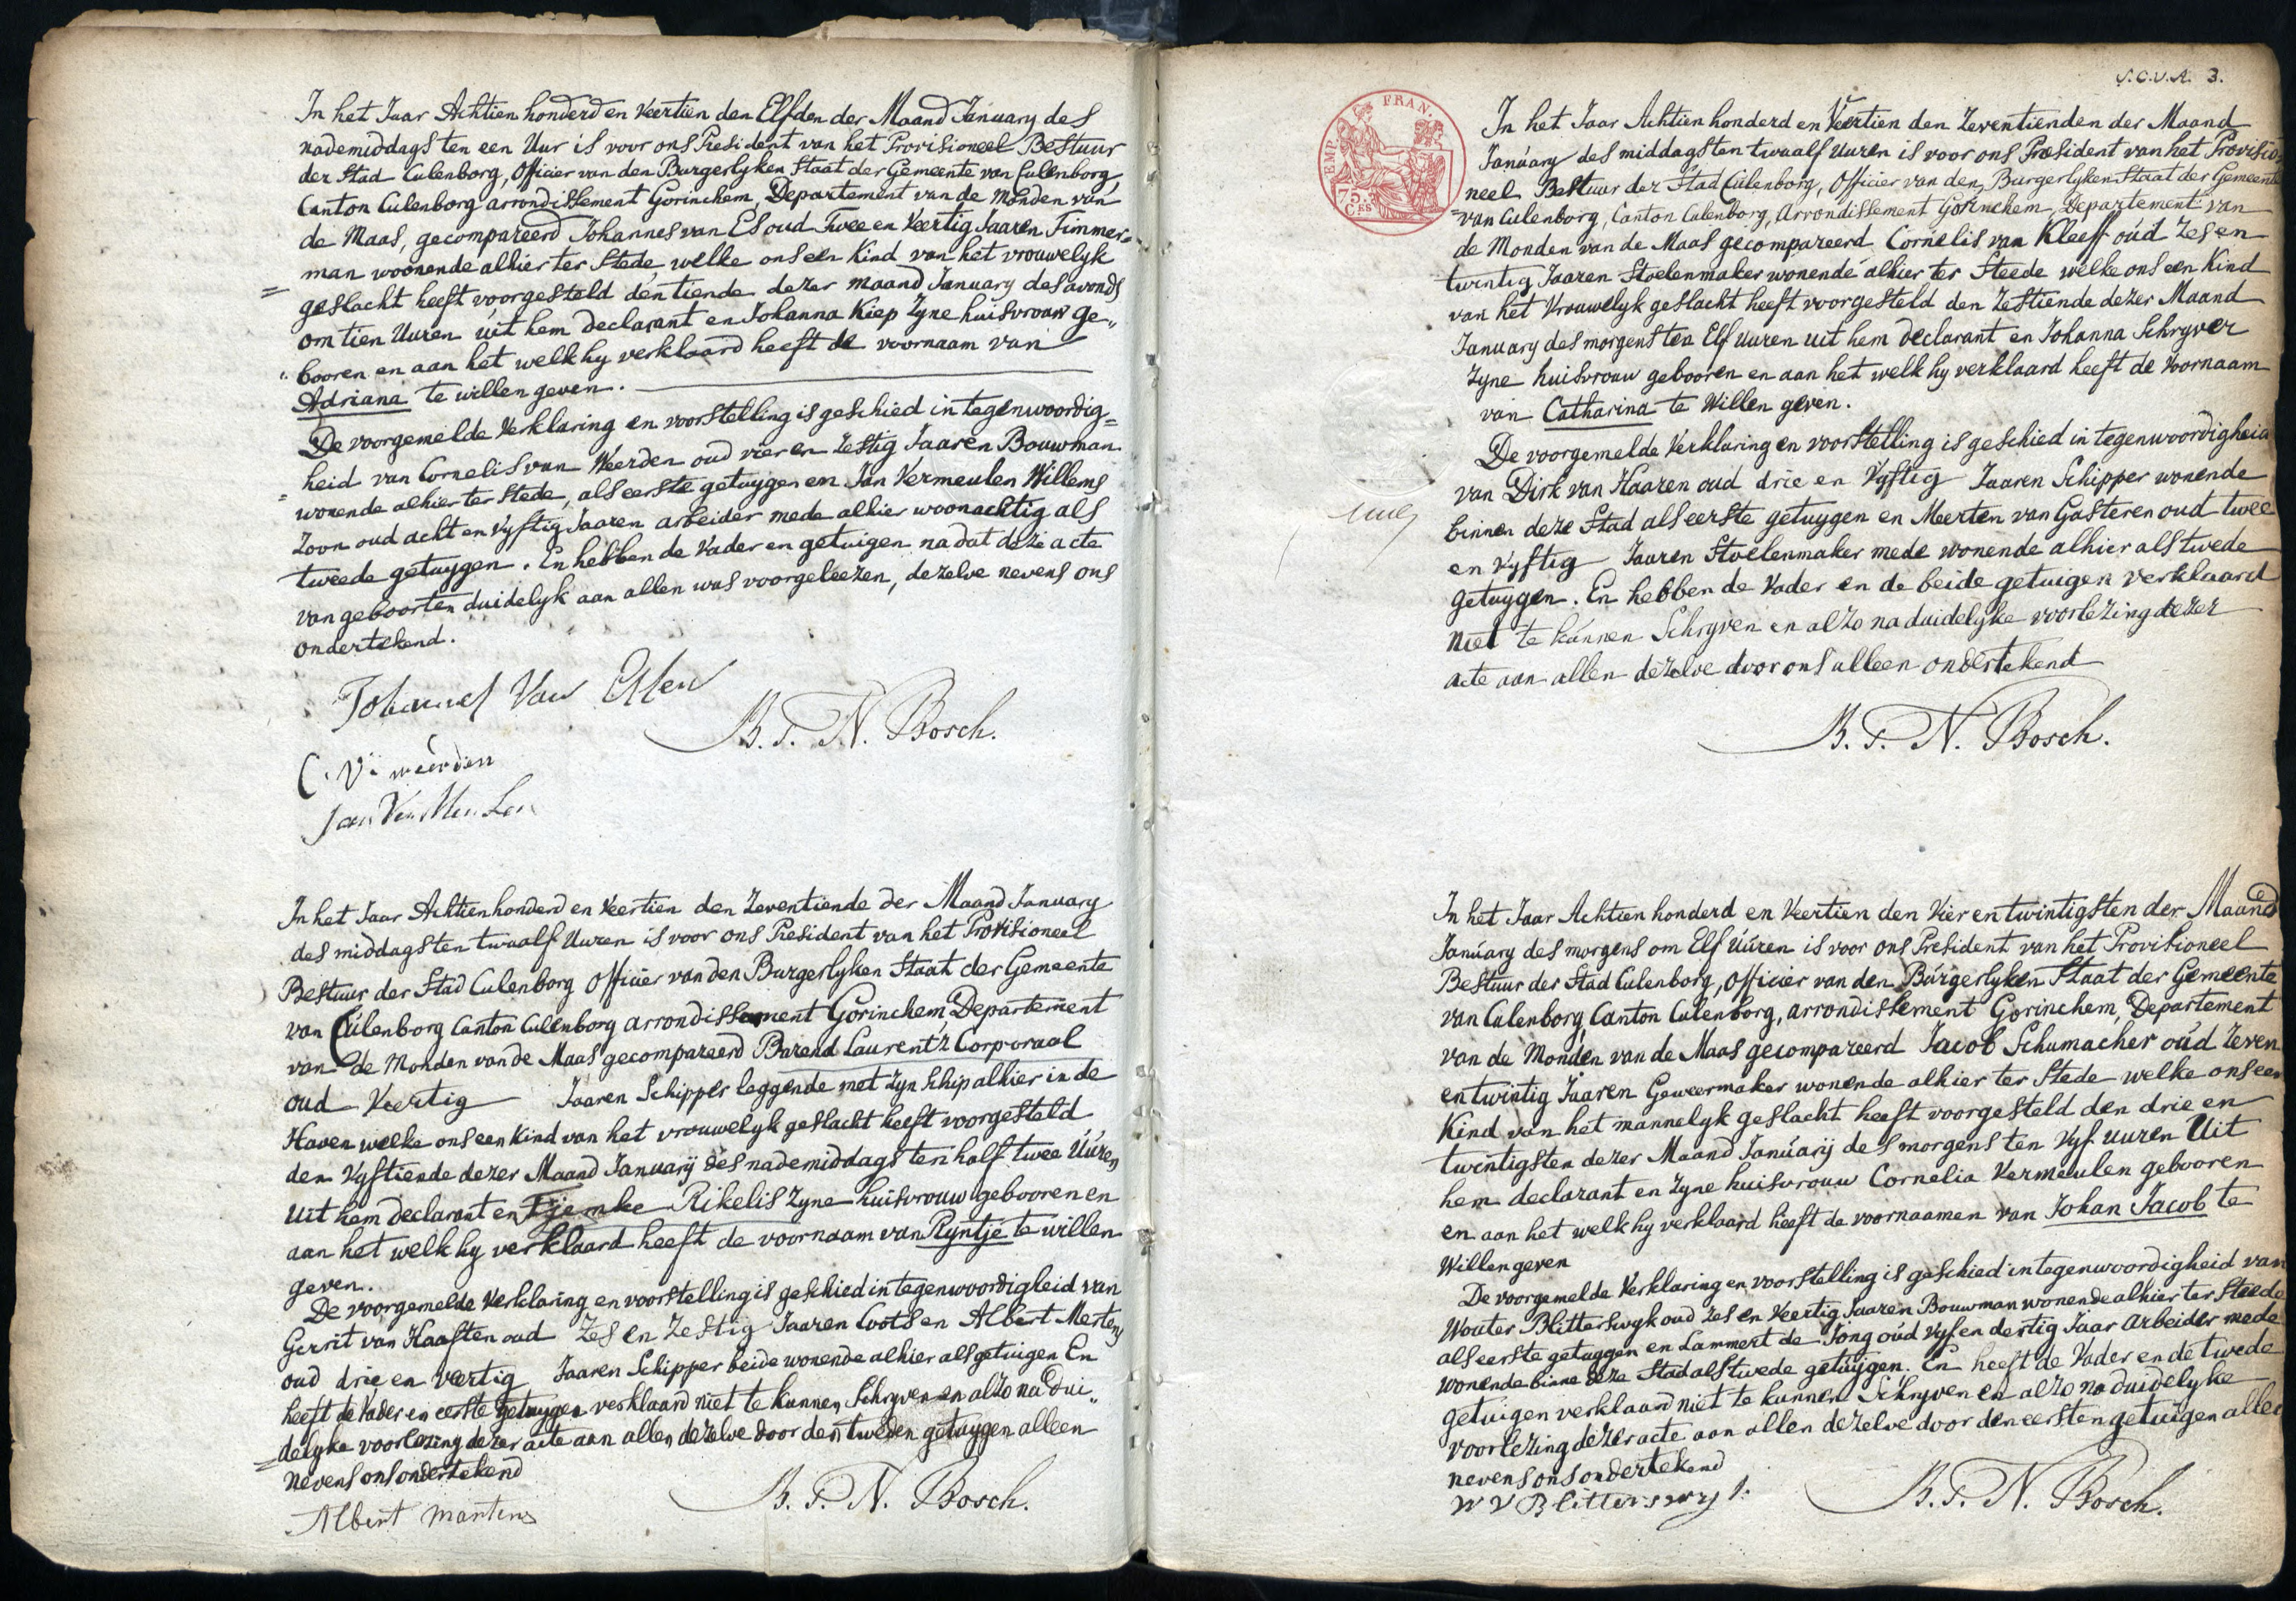 In het Jaar Achtien honderd en Veertien den Elfden der Maand January des
nademiddags ten een Uur is voor ons President van het Provisioneel Bestuur
der Stad Culenborg, Officier van den Burgerlyken Staat der Gemeente van Culenborg
Canton Culenborg arrondissement Gorinchem, Departement van de Monden van
de Maas, gecompareerd Johannes van Es oud Twee en Veertig Jaaren Timmer=
man woonende alhier ter Stede welke ons een Kind van het vrouwelyk
= geslacht heeft voorgesteld den tiende dezer maand January des avonds
om tien Uuren uit hem declarant en Johanna Kiep Zyne huisvrouw ge„
„booren en aan het welk hy verklaard heeft de voornaam van
Adriana te willen geven.
De voorgemelde Verklaring en voorstelling is geschied in tegenwoordig=
= heid van Cornelis van Weerden oud vier en Zestig Jaaren Bouwman
wonende alhier ter Stede, als eerste getuygen en Jan Vermeulen Willems
Zoon oud acht en Vyftig Jaaren arbeider mede alhier woonachtig als
tweede getuygen. En hebben de Vader en getuigen na dat deze acte
van geboorten duidelyk aan allen was voorgeleezen, dezelve nevens ons
ondertekend.
Johannes Van Essen
B. T. N. Bosch.
C. V: weerden
Jan VerMeuLen
In het Jaar Achtienhonderd en Veertien den Zeventiende der Maand January
des middags ten twaalf Uuren is voor ons President van het Provisioneel
Bestuur der Stad Culenborg Officier van den Burgerlyken Staat der Gemeente
van Culenborg Canton Culenborg arrondissement Gorinchem Departement
van de Monden van de Maas gecompareerd Barend Laurent'z Corporaal
oud Veertig Jaaren Schipper leggende met zyn Schip alhier in de
Haven welke ons een Kind van het vrouwelyk geslacht heeft voorgesteld
den Vyftiende dezer Maand Januarij des nademiddags ten half twee Uuren
Uit hem declarant en Tjemke Rikelis Zyne huisvrouw gebooren en
aan het welk hy verklaard heeft de voornaam van Ryntje te willen
geven.
De voorgemelde Verklaring en voorstelling is geschied in tegenwoordigheid van
Gerrit van Haaften oud Zes en Zestig Jaaren Loots en Albert Mertens
oud drie en veertig Jaaren Schipper beide wonende alhier als getuigen En
heeft de Vader en eerste getuygen verklaard niet te kunnen Schryven en alzo na dui„
= delyke voorlezing dezer acte aan allen dezelve door den tweden getuygen alleen
nevens ons ondertekend
Albert Martens
B. T. N. Bosch.
3.
EMP. FRAN.
75. CES
In het Jaar Achtien honderd en Veertien den Zeventienden der Maand
January des middags ten twaalf Uuren is voor ons President van het Provisio=
neel Bestuur der Stad Culenborg, Officier van den Burgerlyken Staat der Gemeente
van Culenborg, Canton Culenborg, Arrondissement Gorinchem, Departement van
de Monden van de Maas gecompareerd Cornelis van Kleeff oud Zes en
twintig Jaaren Stoelenmaker wonende alhier ter Steede welke ons een Kind
van het Vrouwelyk geslacht heeft voorgesteld den Zestiende dezer Maand
January des morgens ten Elf uuren uit hem declarant en Johanna Schryver
Zyne huisvrouw gebooren en aan het welk hy verklaard heeft de Voornaam
van Catharina te Willen geven.
De voorgemelde Verklaring en voorstelling is geschied in tegenwoordigheid
van Dirk van Haaren oud drie en Vyftig Jaaren Schipper wonende
binnen deze Stad als eerste getuygen en Meerten van Gasteren oud twee
en vyftig Jaaren Stoelenmaker mede wonende alhier als twede
getuygen. En hebben de Vader en de beide getuigen verklaard
niet te kunnen Schryven en alzo na duidelyke voorlezing dezer
acte aan allen dezelve door ons alleen ondertekend
B. T. N. Bosch.
In het Jaar Achtien honderd en Veertien den Vier en twintigsten der Maand
January des morgens om Elf Uuren is voor ons President van het Provisioneel
Bestuur der Stad Culenborg, Officier van den Burgerlyken Staat der Gemeente
van Culenborg Canton Culenborg, arrondissement Gorinchem, Departement
van de Monden van de Maas gecompareerd Jacob Schumacher oud Zeven
en twintig Jaaren Geweermaker wonende alhier ter Stede welke ons een
Kind van het mannelyk geslacht heeft voorgesteld den drie en
twintigsten dezer Maand Januarij des morgens ten Vyf uuren Uit
hem declarant en Zyne huisvrouw Cornelia Vermeulen gebooren
en aan het welk hy verklaard heeft de voornaamen van Johan Jacob te
Willen geven
De voorgemelde Verklaring en voorstelling is geschied in tegenwoordigheid van
Wouter Blitterswyk oud Zes en Veertig Jaaren Bouwman wonende alhier ter Steede
als eerste getuygen en Lammert de Jong oud Vyf en dertig Jaar Arbeider mede
wonende binne deze Stad als twede getuijgen. En heeft de Vader en de twede
getuigen verklaard niet te kunnen Schryven en alzo na duidelyke
voorlezing dezer acte aan allen dezelve door den eersten getuigen allee
nevens ons ondertekend
W V Blitterswyk
B. T. N. Bosch.